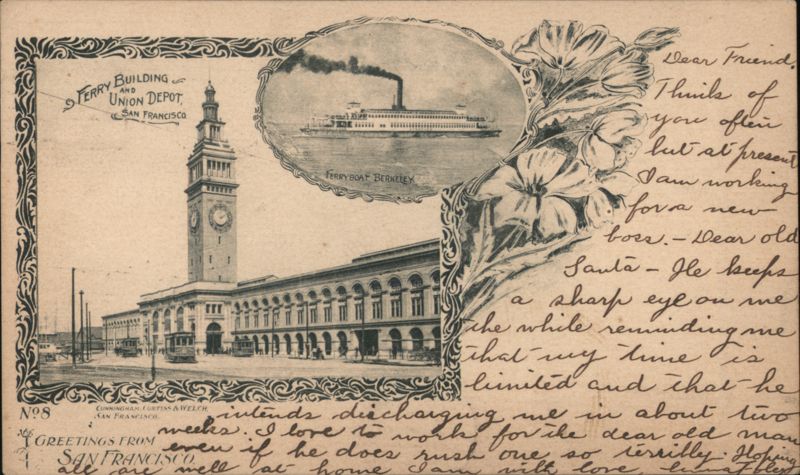 FERRY BUILDING
AND
UNION DEPOT,
SAN FRANCISCO
FERRYBOAT BERKELEY
Dear Friend.
Think of
you often
but at present
I am working
for a new
boss. - Dear old
Santa - He keeps
a sharp eye on me
the while reminding me
that my time is
limited and that he
intends discharging me in about two
weeks. I love to work for the dear old man
even if he does rush one so terribly. Hoping
all are well at home I am with love
No 8
CUNNINGHAM, CURTISS & WELCH,
SAN FRANCISCO.
GREETINGS FROM
SAN FRANCISCO.